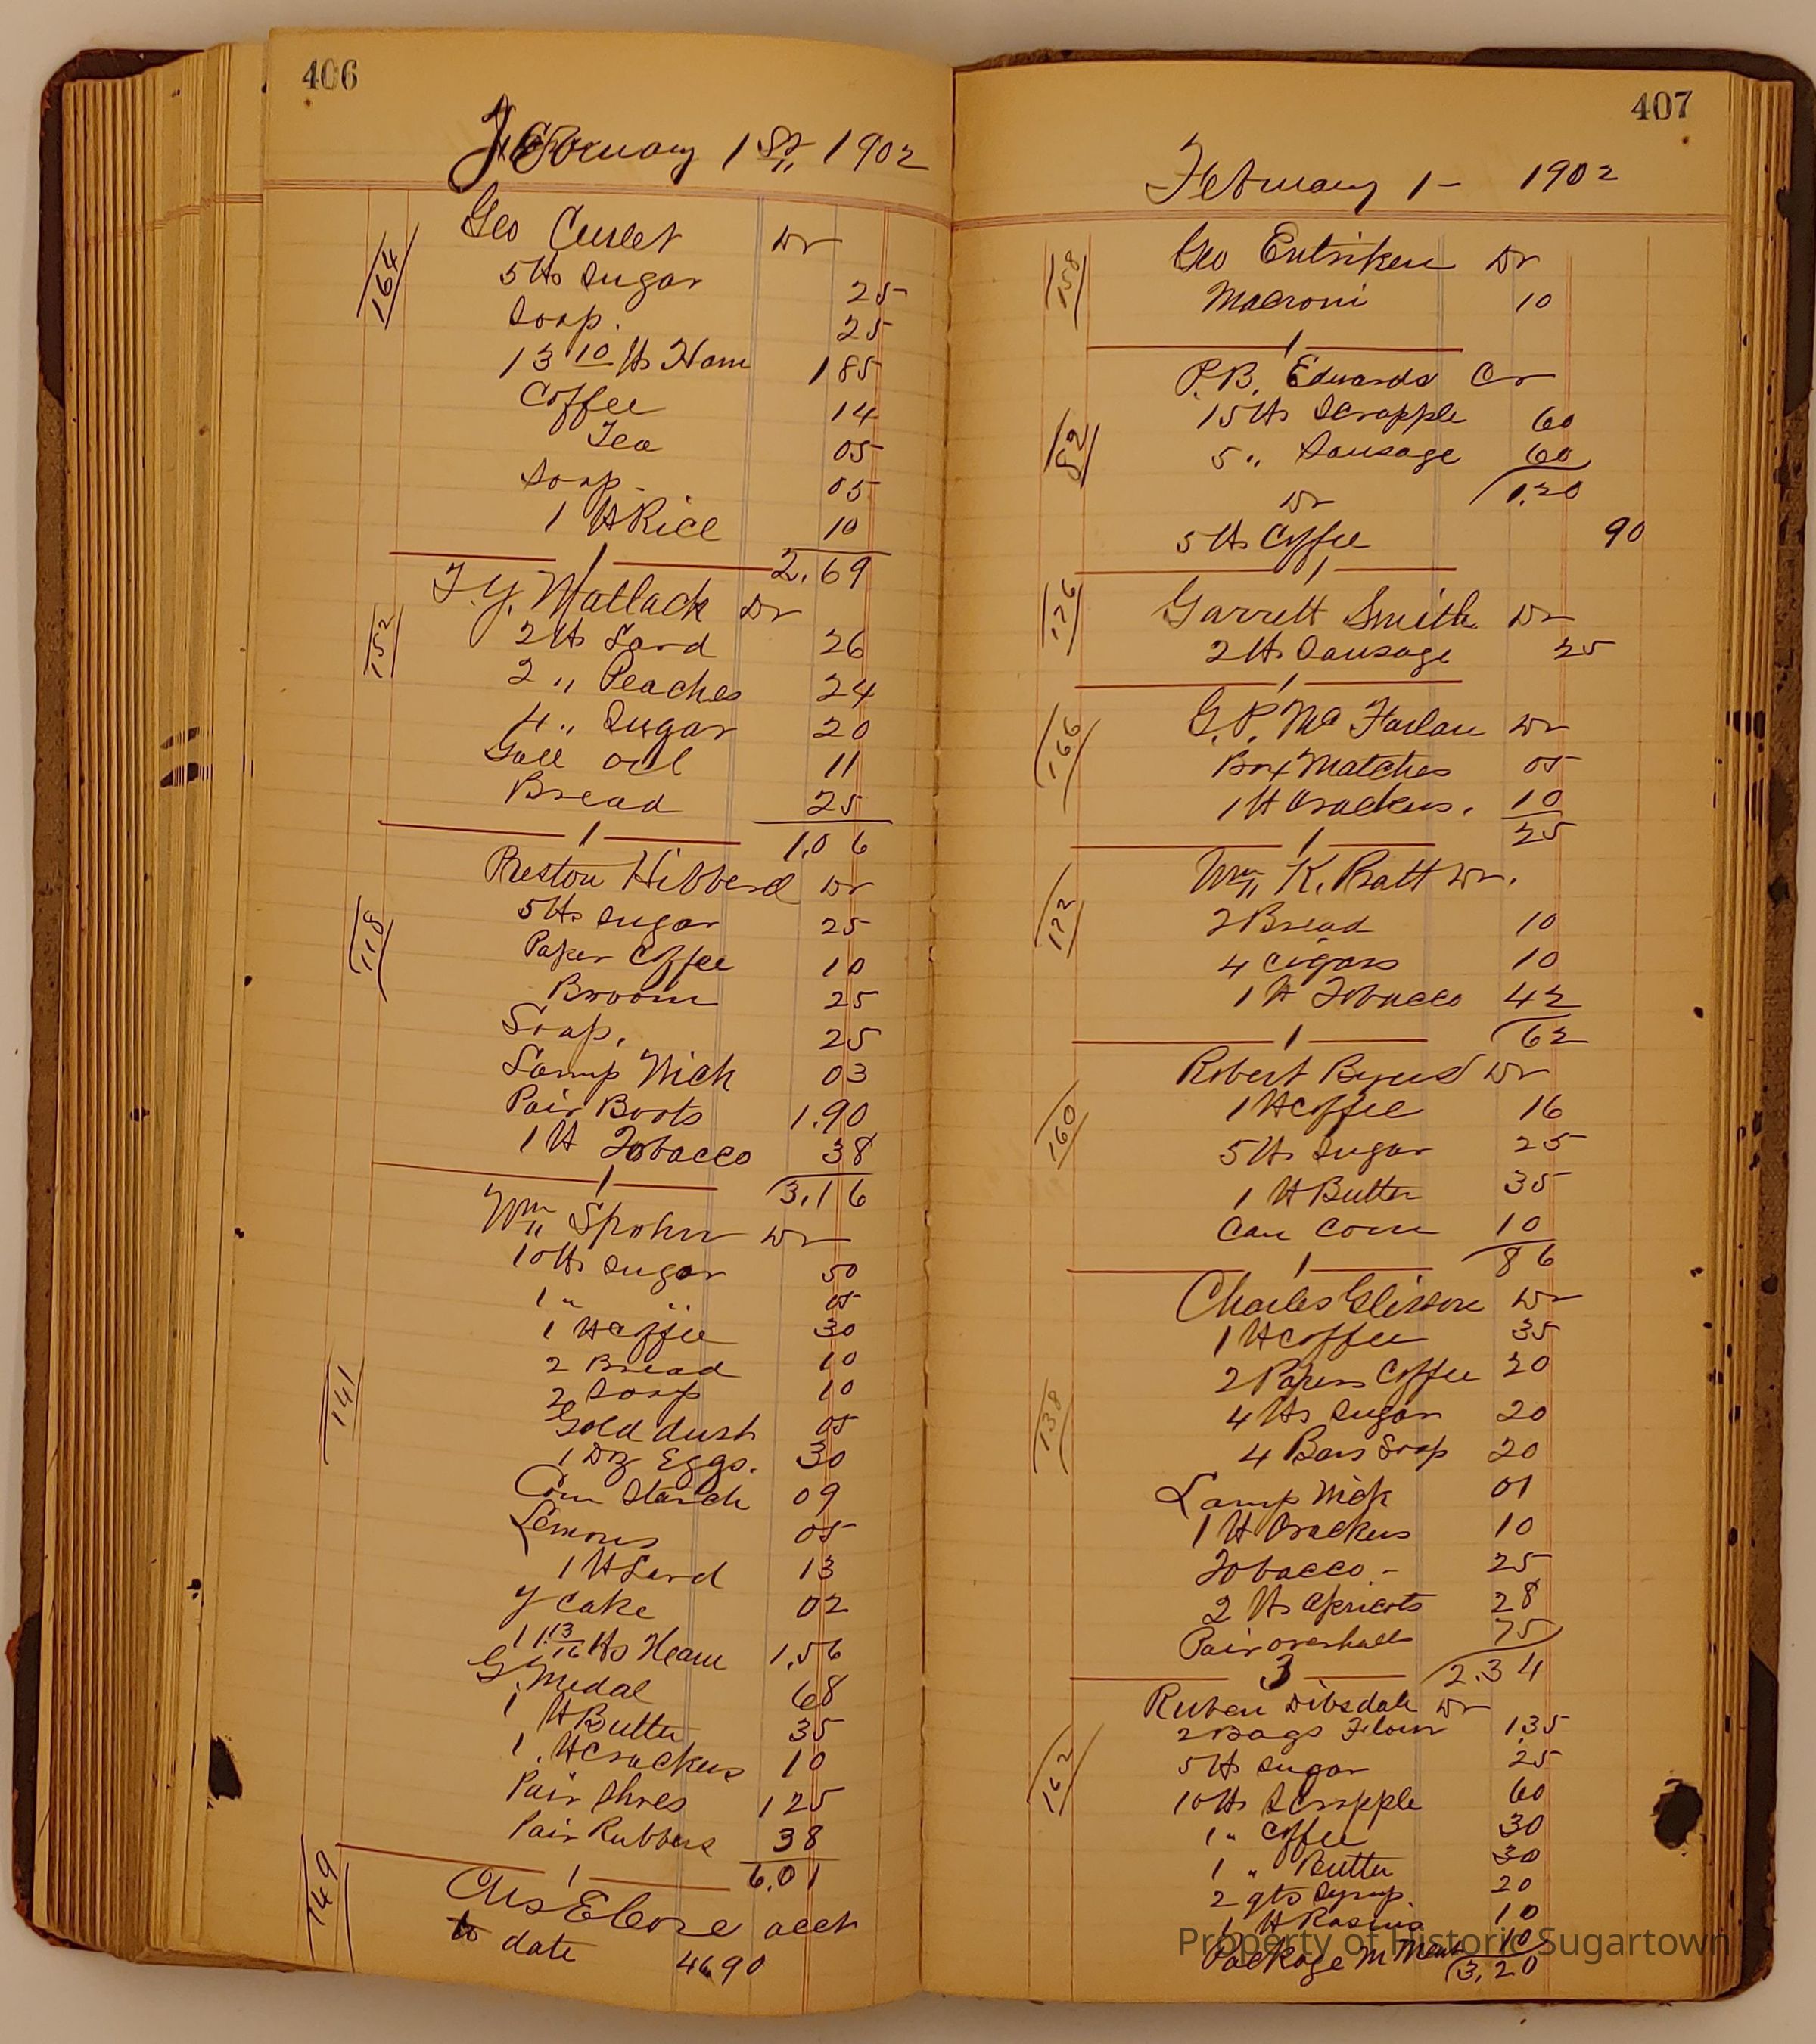 406
February 1st 1902
164
Geo Curlet Dr
5 lbs Sugar 25
Soap. 25
13 10 lbs Ham 1 85
Coffee 14
Tea 05
Soap 05
1 lb Rice 10
1 2.69
152
T. Y. Matlack Dr
2 lbs Lard 26
2 " Peaches 24
4 " Sugar 20
Gall oil 11
Bread 25
1 1.06
118
Preston Hibberd Dr
5 lbs Sugar 25
Paper Coffee 10
Broom 25
Soap, 25
Lamp Wick 03
Pair Boots 1.90
1 lb Tobacco 38
1 3.16
141
Wm Spohn Dr
10 lbs Sugar 50
1 " " 05
1 lb Coffee 30
2 Bread 10
2 Soap 10
Gold dust 05
1 Dz Eggs. 30
Corn Starch 09
Lemons 05
1 lb Lard 13
Y Cake 02
11 13/16 lbs Ham 1.56
G. Medal 68
1 lb Butter 35
1 lb Crackers 10
Pair Shoes 1 25
Pair Rubbers 38
1 6.01
149
acct
to date 46 90
407
February 1 - 1902
158
Geo Entriken Dr
Macroni 10
1
52
P. B. Edwards Cr
15 lbs Scrapple 60
5 " Sausage 60
Dr 1.20
5 lbs Coffee 90
1
126
Garrett Smith Dr
2 lbs Sausage 25
1
166
G. P. Mc Farlan Dr
Box Matches 05
1 lb Crackers. 10
1 25
122
Wm K. Pratt Dr.
2 Bread 10
4 Cigars 10
1 lb Tobacco 42
1 62
160
Robert Byers Dr
1 lb Coffee 16
5 lbs Sugar 25
1 lb Butter 35
Can Corn 10
1 86
138
Charles Dr
1 lb Coffee 35
2 Papers Coffee 20
4 lbs Sugar 20
4 Bars Soap 20
Lamp Wick 01
1 lb Crackers 10
Tobacco - 25
2 lbs Apricots 28
Pair overhalls 75
3 2.34
162
Ruben Dibsdale Dr
2 Bags Flour 1.35
5 lb Sugar 25
10 lbs Scrapple 60
1 " Coffee 30
1 " Butter 30
2 qts Syrup. 20
1 lb Rasins 10
Package M Meat 10
3.20
Property of Historic Sugartown